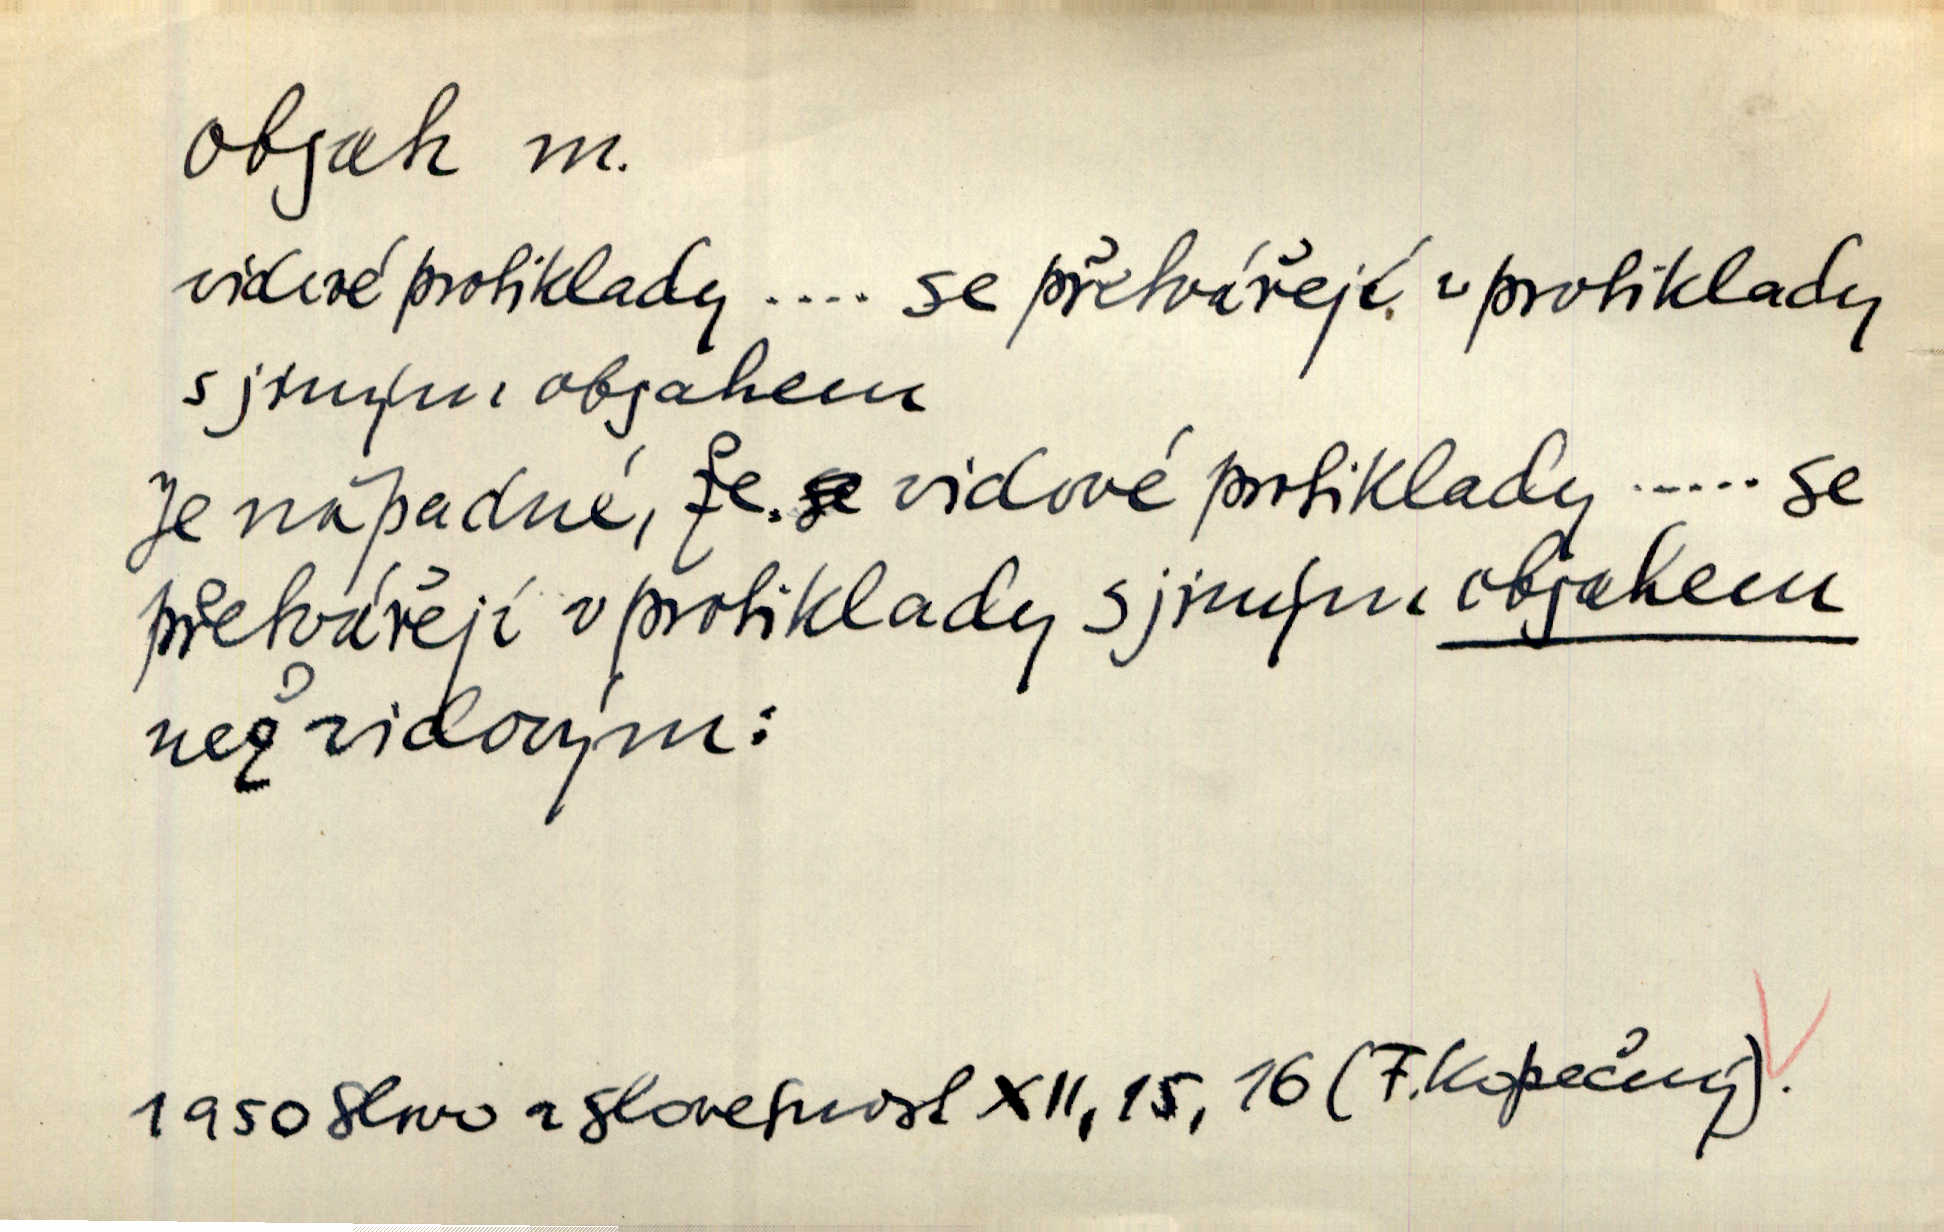 obsah m.
vidové protiklady .... se přetvářejí v protiklady
s jiným obsahem
Je nápadné, že vidové protiklady ..... se
přetvářejí v protiklady s jiným obsahem
než vidovým:
1950 Slovo a slovesnost XII, 15, 16 (F. Kopečný).